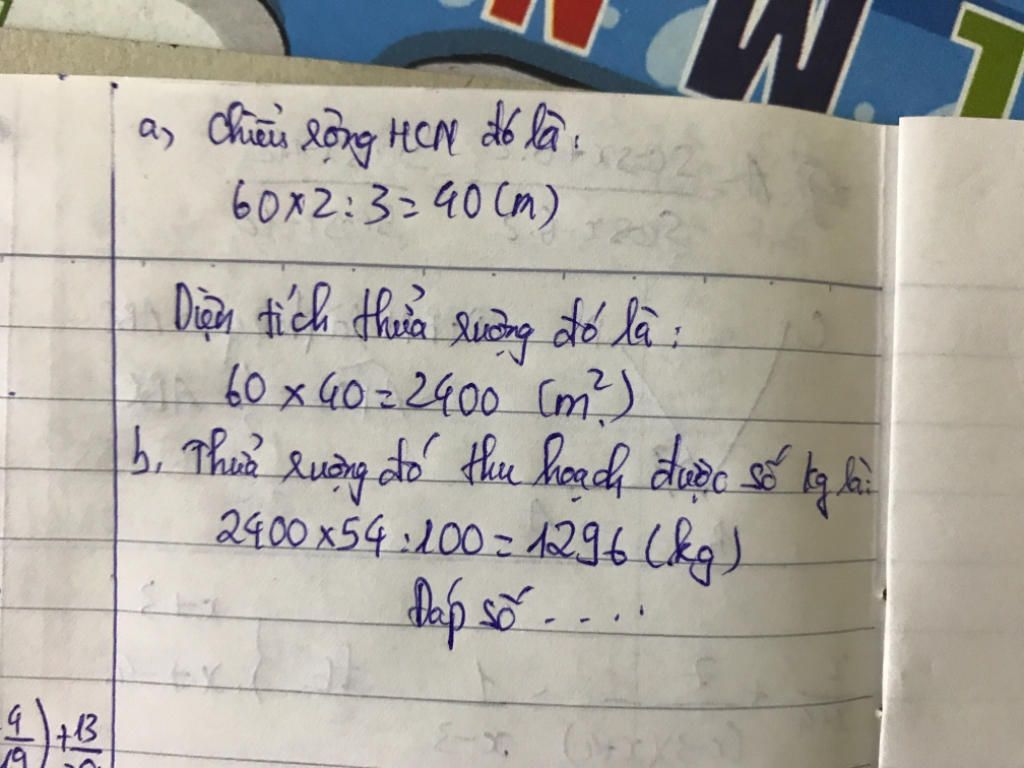 W
L
a, Chiều rộng HCN đó là:
60 × 2 : 3 = 40 (m)
Diện tích thửa ruộng đó là:
60 × 40 = 2400 (m²)
b, Thửa ruộng đó thu hoạch được số kg là:
2400 × 54 : 100 = 1296 (kg)
Đáp số ....
4/19) + 13